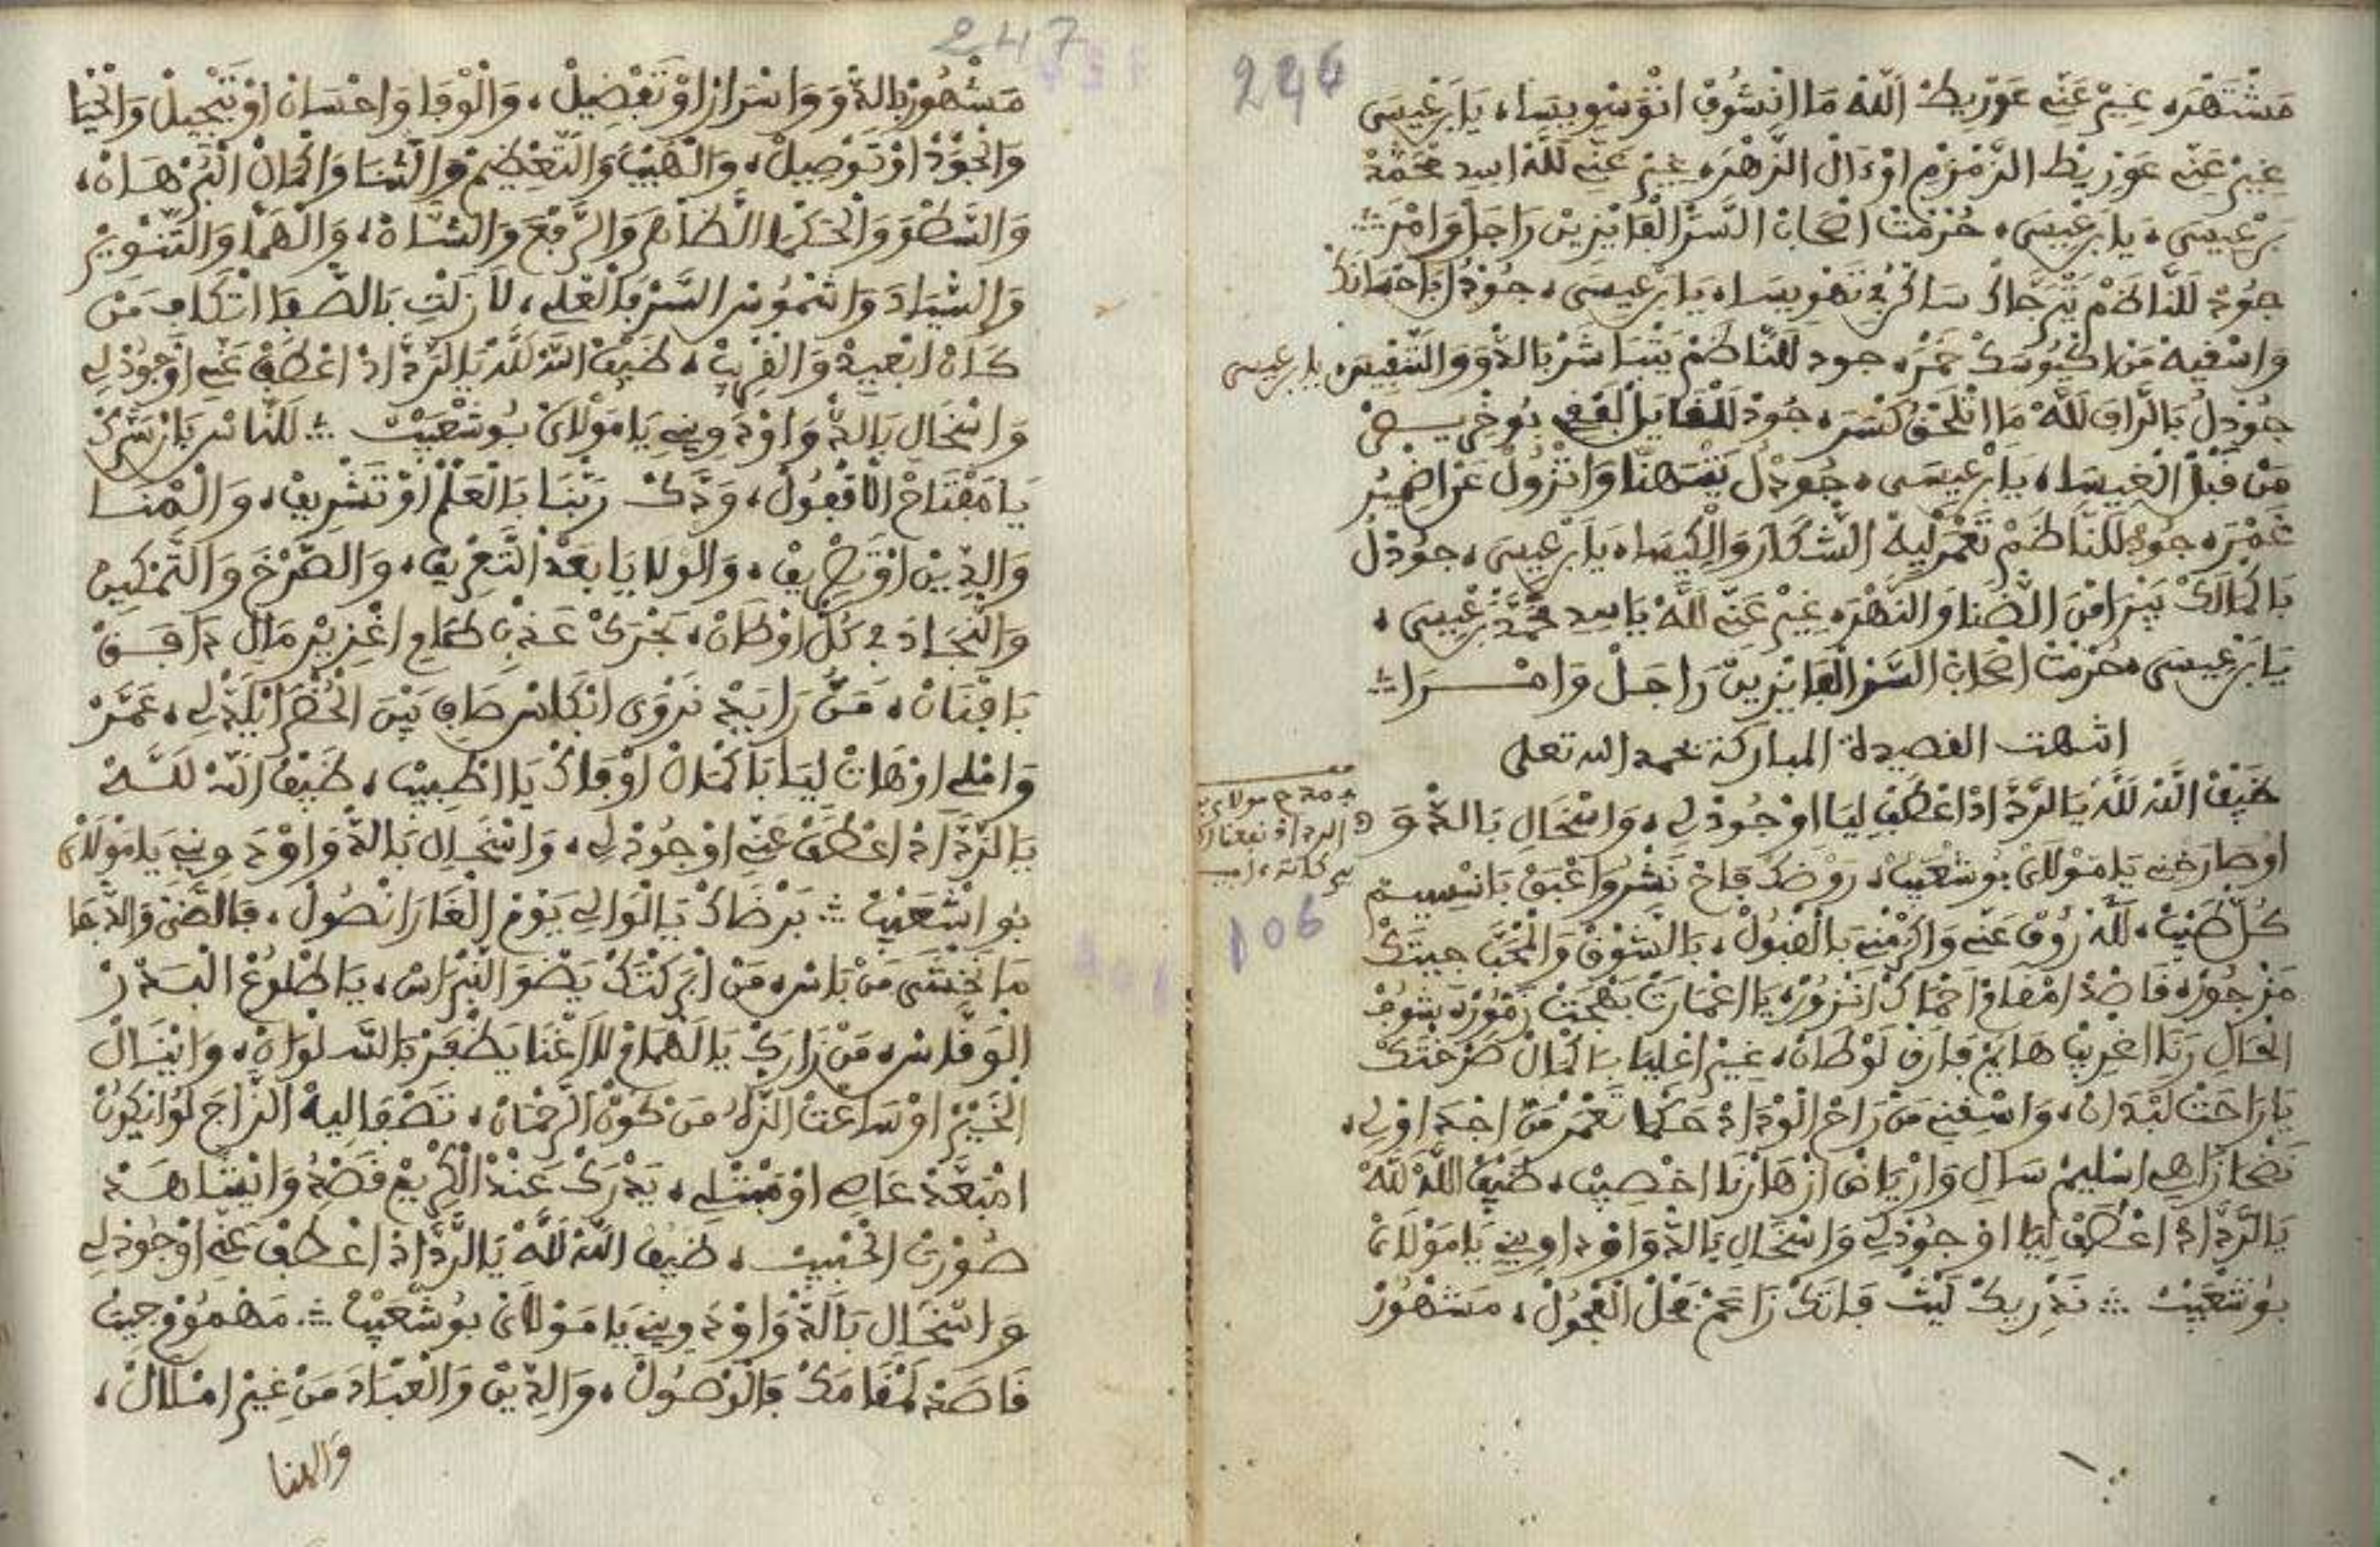 246
مشتهرة، غير عني عوريط الله ما انشوف انتوسويسا، يا بن عيسى
غير عني عوريط الزمزم اوءال الزهرة، غير عني لله اسيد محمد
بن عيسى، يا بن عيسى، حرمت اصحاب السر الفايزين راجل وامرا
جود للناظم يترجاك ساكن في تهويسا، يا بن عيسى، جود ل باحسانك
واسقيه من اكيوسك خمرة، جود للناظم يتباشر بالدوو والتنفيس، يا بن عيسى
جود ل بالراف لله ما اتلحق كشرة، جود للفايل لقفى بوخريص
من قبل الغيسا، يا بن عيسى، جود ل يتهنا واتزول عن اضمير
غمرة، جود للناظم تعمر ليه الشكار والكيسا، يا بن عيسى، جود ل
باكمالك يبرا من الضنا والنهرة، غير عني لله يا سيد محمد بن عيسى،
يا بن عيسى، حرمت اصحاب السر الفايزين راجل وامـرا
انتهت القصيدة المباركة بحمد الله تعلى
ضيف الله لله يا الرداد اعطف ليا اوجود لي، واسخال بالدوو
اوصارخني يا مولاي بوشعيب، روضك فاح نشر واعبق بانسيم
كل طيب، لله روف عني واكرمني بالقبول، بالشوق والمحبا جيتك
مزجورة قاصد امقام احماك انزورة، يا اعمارت بهجت زمورة، بشوف
الحال رنا اغريب هايم فارق لوطان، غير اعليا بالكمال ضرختك
يا راحت لبدان، واسقني من راح الوداد حكما تعمر من اجد اولي،
نضحا زاهي اسليم سال وارياض ازهارنا اخصيب، ضيف الله لله
يا الرداد اعطف ليا اوجود لي واسخال بالدوا اود اويني يا مولاي
بوشعيب ∴ نديريك ليت فاتك زاعم نخل الفحول، مشهور
106
247
مشهور بالدوو واسرار اوتفضيل، والوفا واحسان اوتبجيل والحيا
والجود اوتوصيل، والهيبا والتعظيم والثنا واكمال البرهان،
والسطو والحكما الظاهر والرفع والشان، والهما والتنوير
والسياد واشموس السر بالعلي، لا زلت بالصفا اتكاف من
كان ابعيد والقريب، ضيف الله لله يا الرداد اعطف عني اوجود لي
واسخال بالدوا اود ويني يا مولاي بوشعيب ∴ للناس بان سرك
يا مفتاح القفول، ودك ربنا بالعلم اوتشريف، والهنا
والدين اوتصريف، والولايا بعد التعريف، والصرخ والتمكين
والنجاد في كل اوطان، بحرك عذب طامي اغزير مال دافق
بافنان، من رايد نروى ابكاس صافي بين الحضرا يلدلي، عمر
واملي اوهات ليا باكمال اوفاك يا اطبيب، ضيف الله لله
يا الرداد اعطف عني اوجود لي، واسخال بالدوا اود ويني يا مولاي
بواشعيب ∴ برضاك يا الوالي يوم الغارا نصول، فالضي والدجا
ما نخشى من باس، من ابركتك يضوا النبراس، يا طلوع البدر
الوقاس، من زارك يا الهمام للاغنا يظفر بالسلوان، واينال
الخير اوساعت الزاد من كون الرحمان، تصفا ليه الزاج لو ايكون
امتعد عاصي اومبتلي، يدرك عند الكريم قصد وايشاهد
صورت الحبيب، ضيف الله لله يا الرداد اعطف عني اوجود لي
واسخال بالدوا اود ويني يا مولاي بوشعيب ∴ مهموم جيت
قاصد لمقامك بالوصول، والدين والعباد من غير امتلال،
والهنا